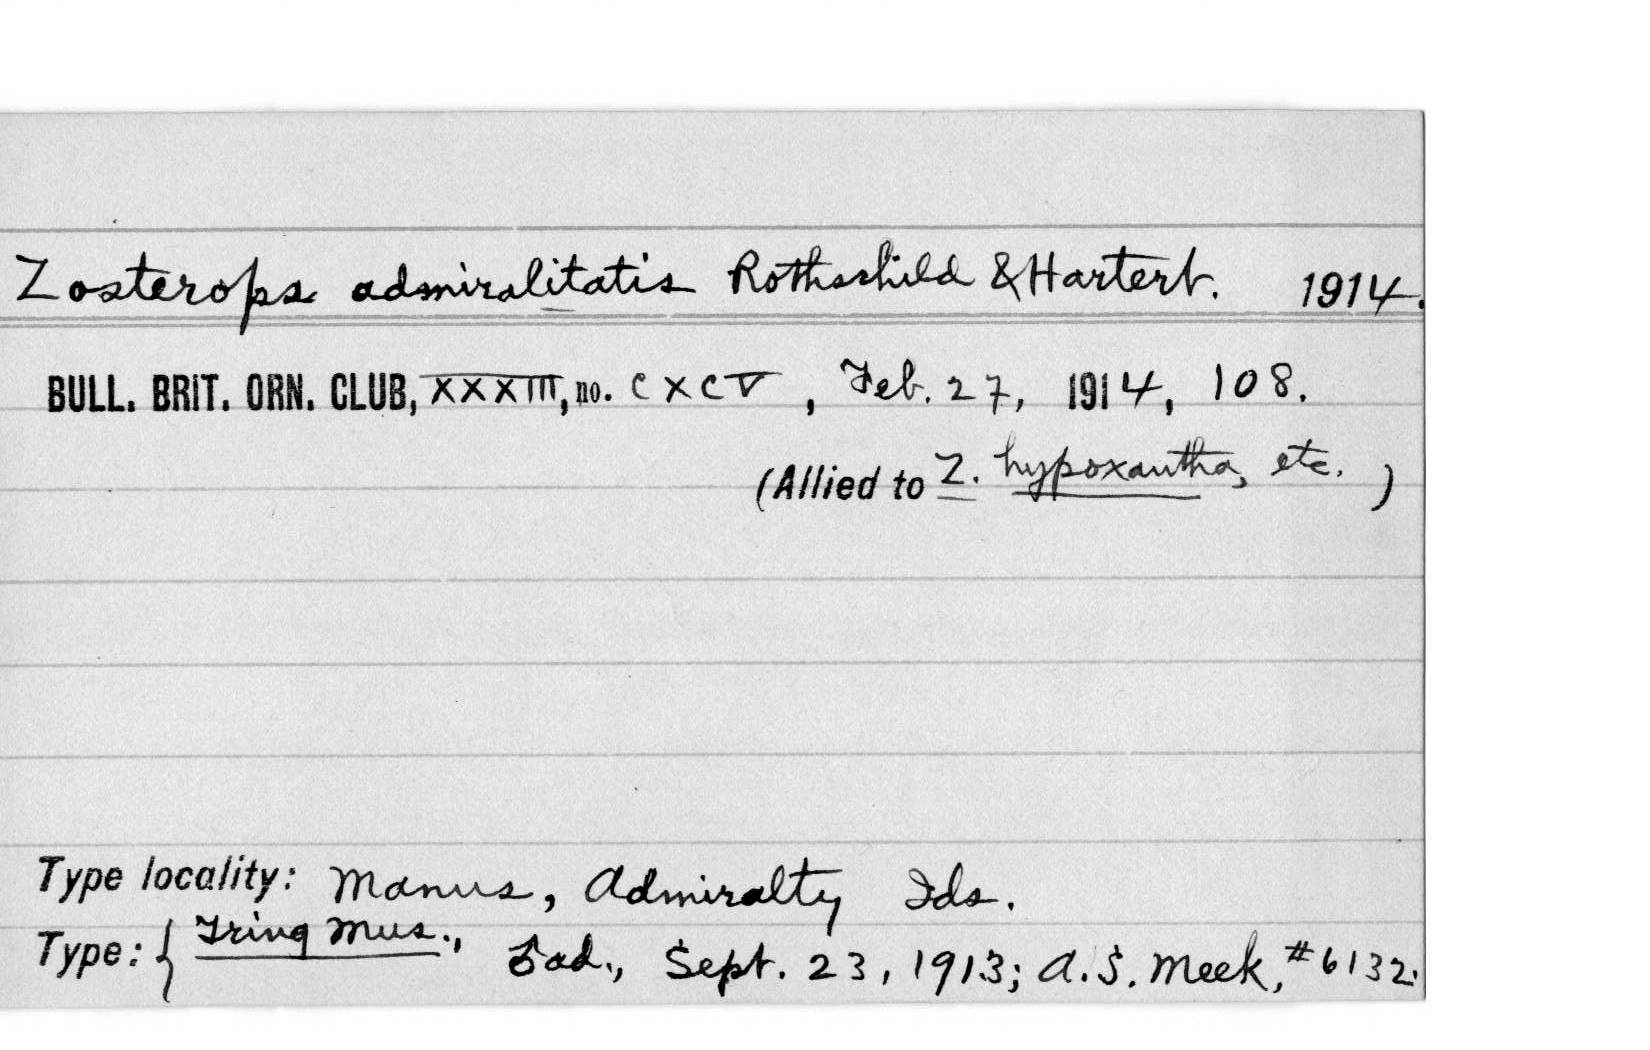 Zosterops admiralitatis Rothschild & Hartert. 1914.
BULL. BRIT. ORN. CLUB, XXXIII, no. CXCV, Feb. 27, 1914, 108.
(Allied to Z. hypoxantha, etc. )
Type locality: Manus, Admiralty Ids.
Type: { Tring Mus., ♂ad., Sept. 23, 1913; A.S. Meek, #6132.